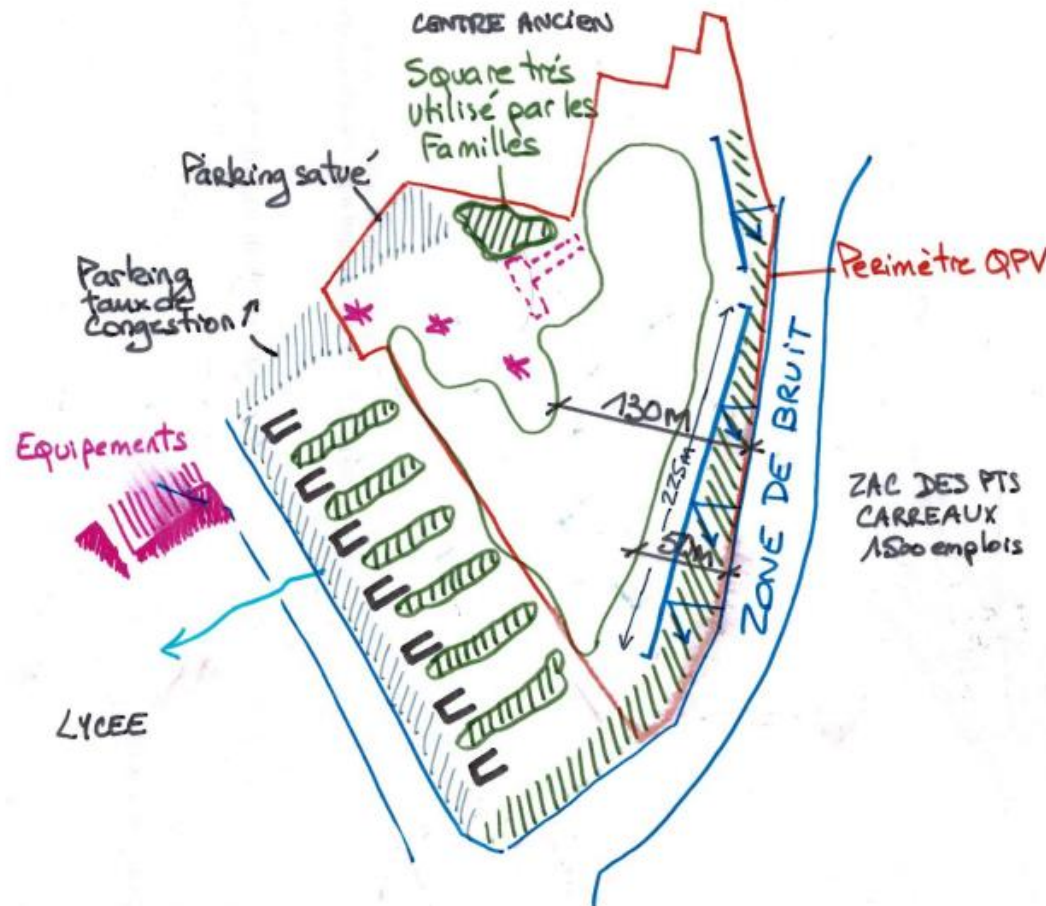 CENTRE ANCIEN
Square très
utilisé par les
Familles
Parking satué
Parking
taux de
Congestion
Périmètre QPV
Equipements
130M
225m
ZONE DE BRUIT
ZAC DES PTS
CARREAUX
1500 emplois
LYCEE